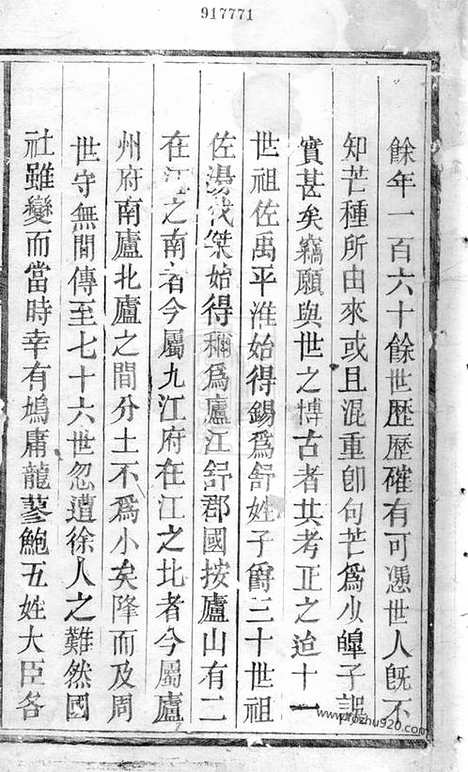 917771
餘年一百六十餘世歷歷確有可憑世人旣不
知芒種所由來或且混重卽句芒爲少皡子誤
實甚矣竊願與世之博古者共考正之迨十一
世祖佐禹平淮始得錫爲舒姓子爵三十世祖
佐湯伐桀始得稱爲廬江舒郡國按廬山有二
在江之南者今屬九江府在江之北者今屬廬
州府南廬北廬之間分土不爲小矣降而及周
世守無間傳至七十六世忽遭徐人之難然國
社雖變而當時幸有鳩庸龍蓼鮑五姓大臣各
www.rozhu920.com